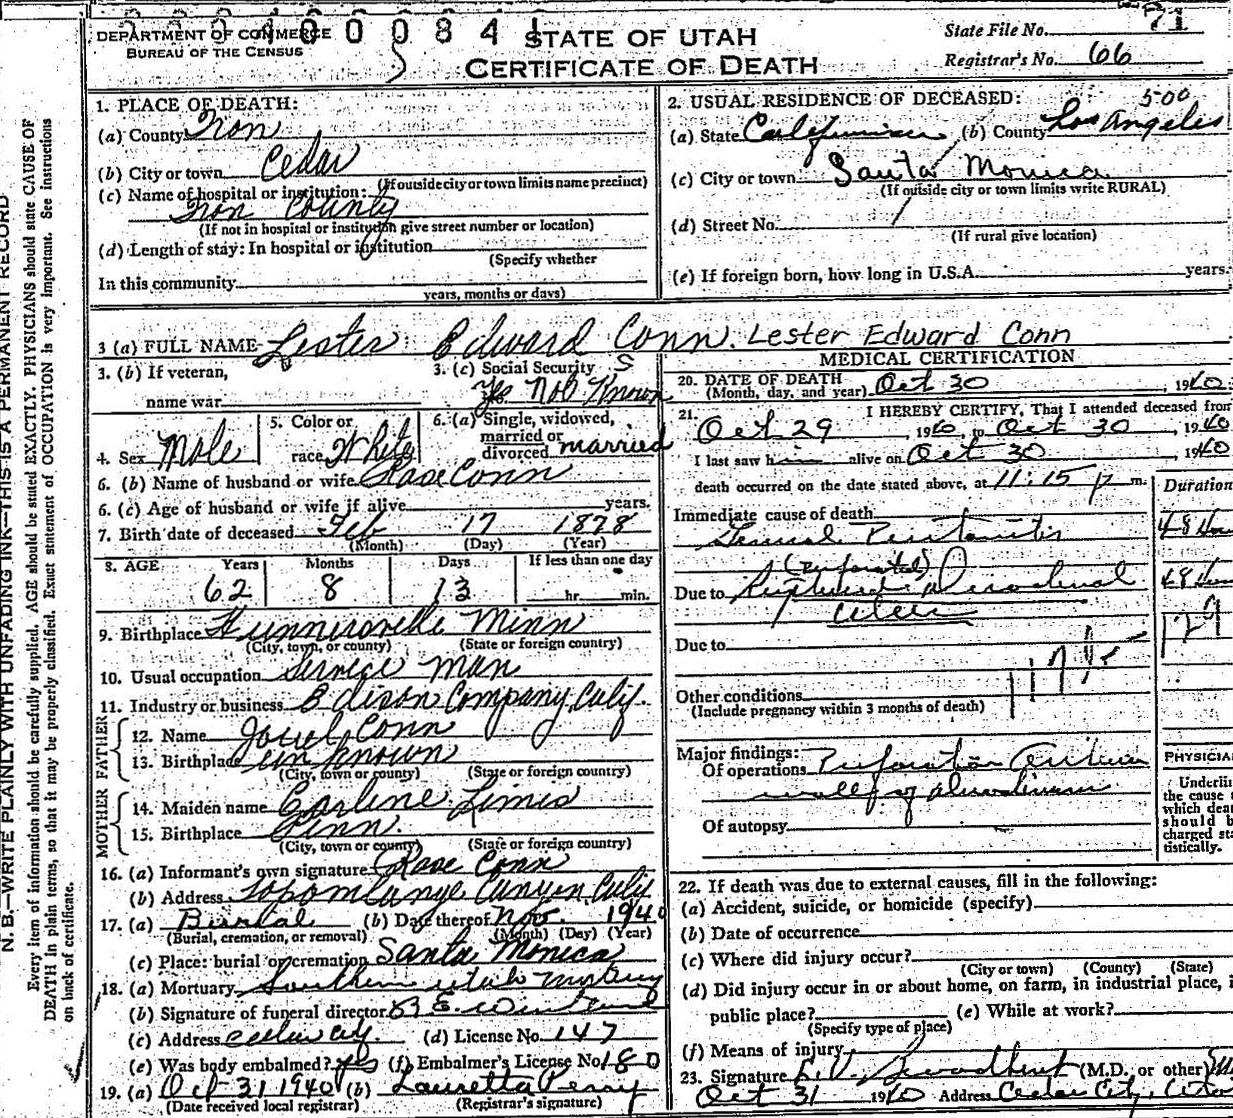 71
DEPARTMENT OF COMMERCE
BUREAU OF THE CENSUS
STATE OF UTAH
CERTIFICATE OF DEATH
State File No.
Registrar's No. 66
1. PLACE OF DEATH:
(a) County Iron
(b) City or town Cedar
(If outside city or town limits name precinct)
(c) Name of hospital or institution:
Iron County
(If not in hospital or institution give street number or location)
(d) Length of stay: In hospital or institution
(Specify whether
In this community
years, months or days)
2. USUAL RESIDENCE OF DECEASED: 500
(a) State California (b) County Los Angeles
(c) City or town: Santa Monica
(If outside city or town limits write RURAL)
(d) Street No.
(If rural give location)
(e) If foreign born, how long in U.S.A. years.
3 (a) FULL NAME Lester Edward Conn. Lester Edward Conn
3. (b) If veteran,
name war
3. (c) Social Security
Yes Not Known
4. Sex Male
5. Color or
race White
6. (a) Single, widowed,
married or
divorced married
6. (b) Name of husband or wife Rose Conn
6. (c) Age of husband or wife if alive years.
7. Birth date of deceased Feb 17 1878
(Month) (Day) (Year)
8. AGE Years Months Days If less than one day
62 8 13 hr. min.
9. Birthplace Minn
(City, town, or county) (State or foreign country)
10. Usual occupation Service Man
11. Industry or business Edison Company, Calif.
FATHER
12. Name Conn
13. Birthplace unknown
(City, town or county) (State or foreign country)
MOTHER
14. Maiden name
15. Birthplace
(City, town or county) (State or foreign country)
16. (a) Informant's own signature Rose Conn
(b) Address Canyon Calif
17. (a) Burial (b) Date thereof Nov. 1940
(Burial, cremation, or removal) (Month) (Day) (Year)
(c) Place: burial or cremation Santa Monica
18. (a) Mortuary Southern Utah Mortuary
(b) Signature of funeral director
(c) Address Cedar City. (d) License No. 147
(e) Was body embalmed? yes (f) Embalmer's License No. 180
19. (a) Oct 31 1940 (b) Lauretta Perry
(Date received local registrar) (Registrar's signature)
MEDICAL CERTIFICATION
20. DATE OF DEATH
(Month, day, and year) Oct 30, 1940.
21. I HEREBY CERTIFY, That I attended deceased from
Oct 29, 1940 to Oct 30, 1940
I last saw him alive on Oct 30, 1940
death occurred on the date stated above, at 11:15 p m.
Duration
Immediate cause of death
General Peritonitis 48
(perforated)
Due to Ruptured Duodenal 48
ulcer
129
Due to
117
Other conditions
(Include pregnancy within 3 months of death)
Major findings:
Of operations Perforation
wall of duodenum
Of autopsy
PHYSICIA
Underli
the cause t
which dea
should b
charged sta
tistically.
22. If death was due to external causes, fill in the following:
(a) Accident, suicide, or homicide (specify)
(b) Date of occurrence
(c) Where did injury occur?
(City or town) (County) (State)
(d) Did injury occur in or about home, on farm, in industrial place, i
public place? (e) While at work?
(Specify type of place)
(f) Means of injury
23. Signature Broadbent (M.D. or other)
Oct 31 1940 Address Cedar City, Uta
N. B.—WRITE PLAINLY WITH UNFADING INK—THIS IS A PERMANENT RECORD
Every item of information should be carefully supplied. AGE should be stated EXACTLY. PHYSICIANS should state CAUSE OF
DEATH in plain terms, so that it may be properly classified. Exact statement of OCCUPATION is very important. See instructions
on back of certificate.